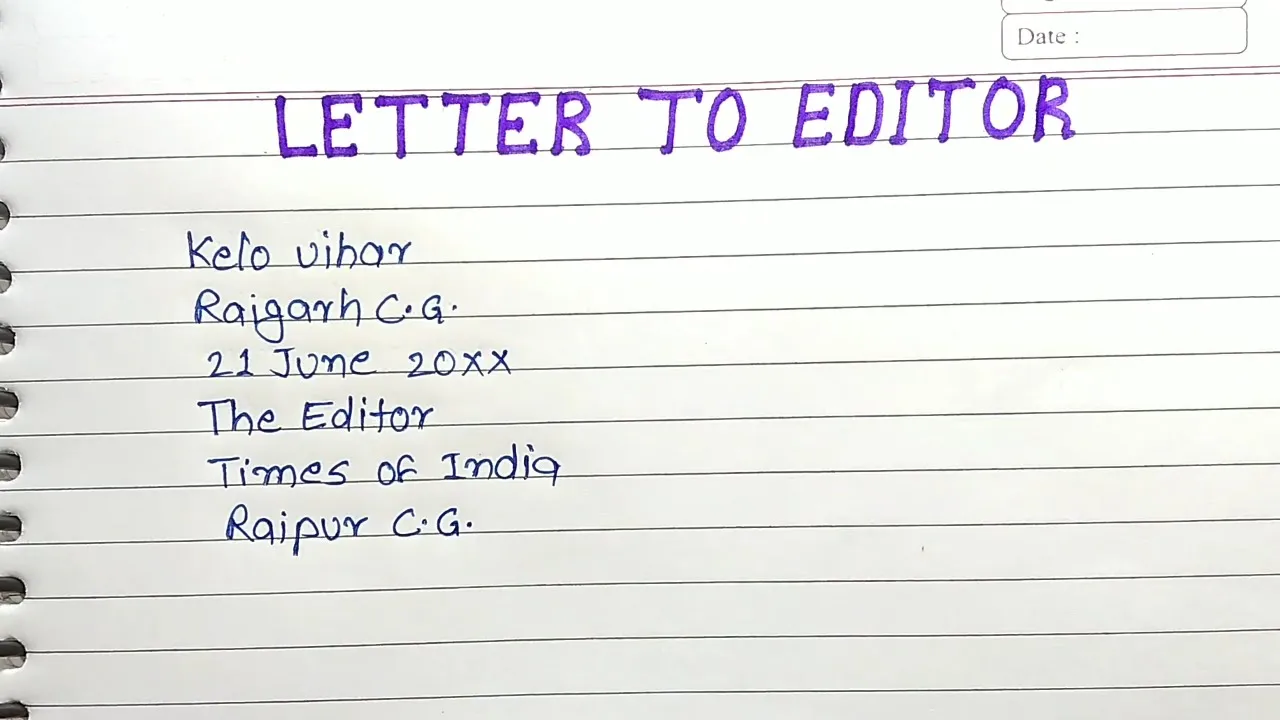 Date :
LETTER TO EDITOR
Kelo vihar
Raigarh C.G.
21 June 20xx
The Editor
Times of India
Raipur C.G.